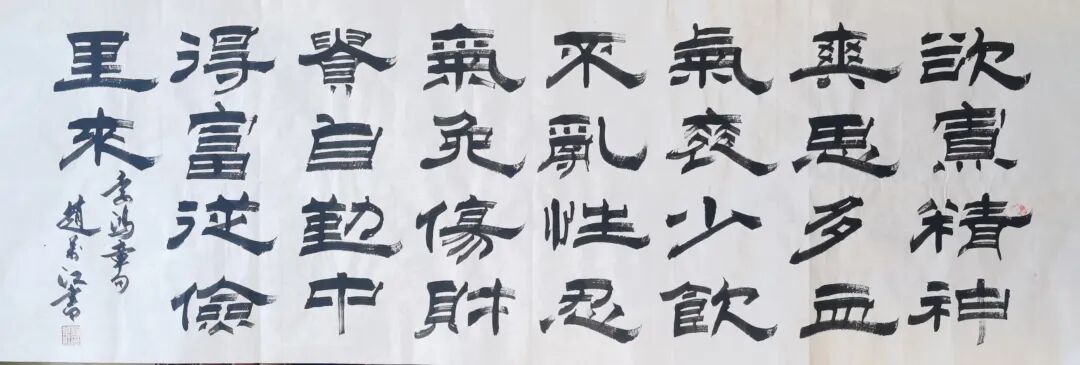 欲寡精神
爽思多血
氣衰少飲
不亂性忍
氣免傷財
貴自勤中
得富從儉
里來
李鴻章句
趙 江書